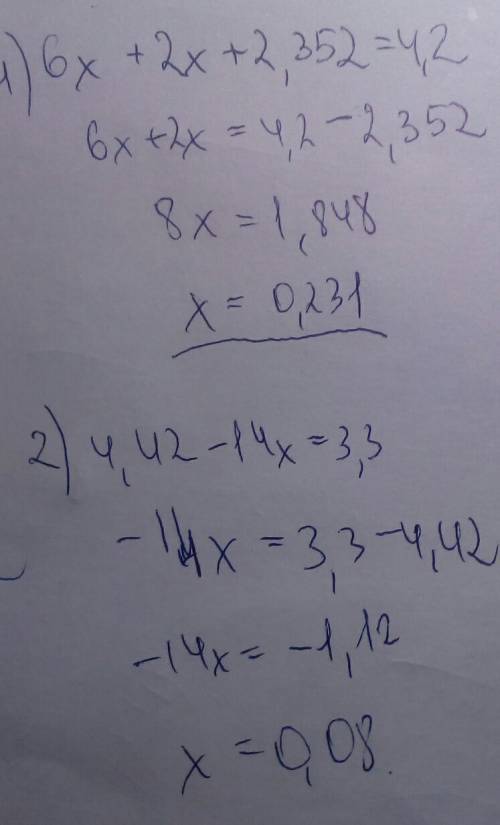 1) 6x + 2x + 2,352 = 4,2
6x + 2x = 4,2 - 2,352
8x = 1,848
x = 0,231
2) 4,42 - 14x = 3,3
-14x = 3,3 - 4,42
-14x = -1,12
x = 0,08.